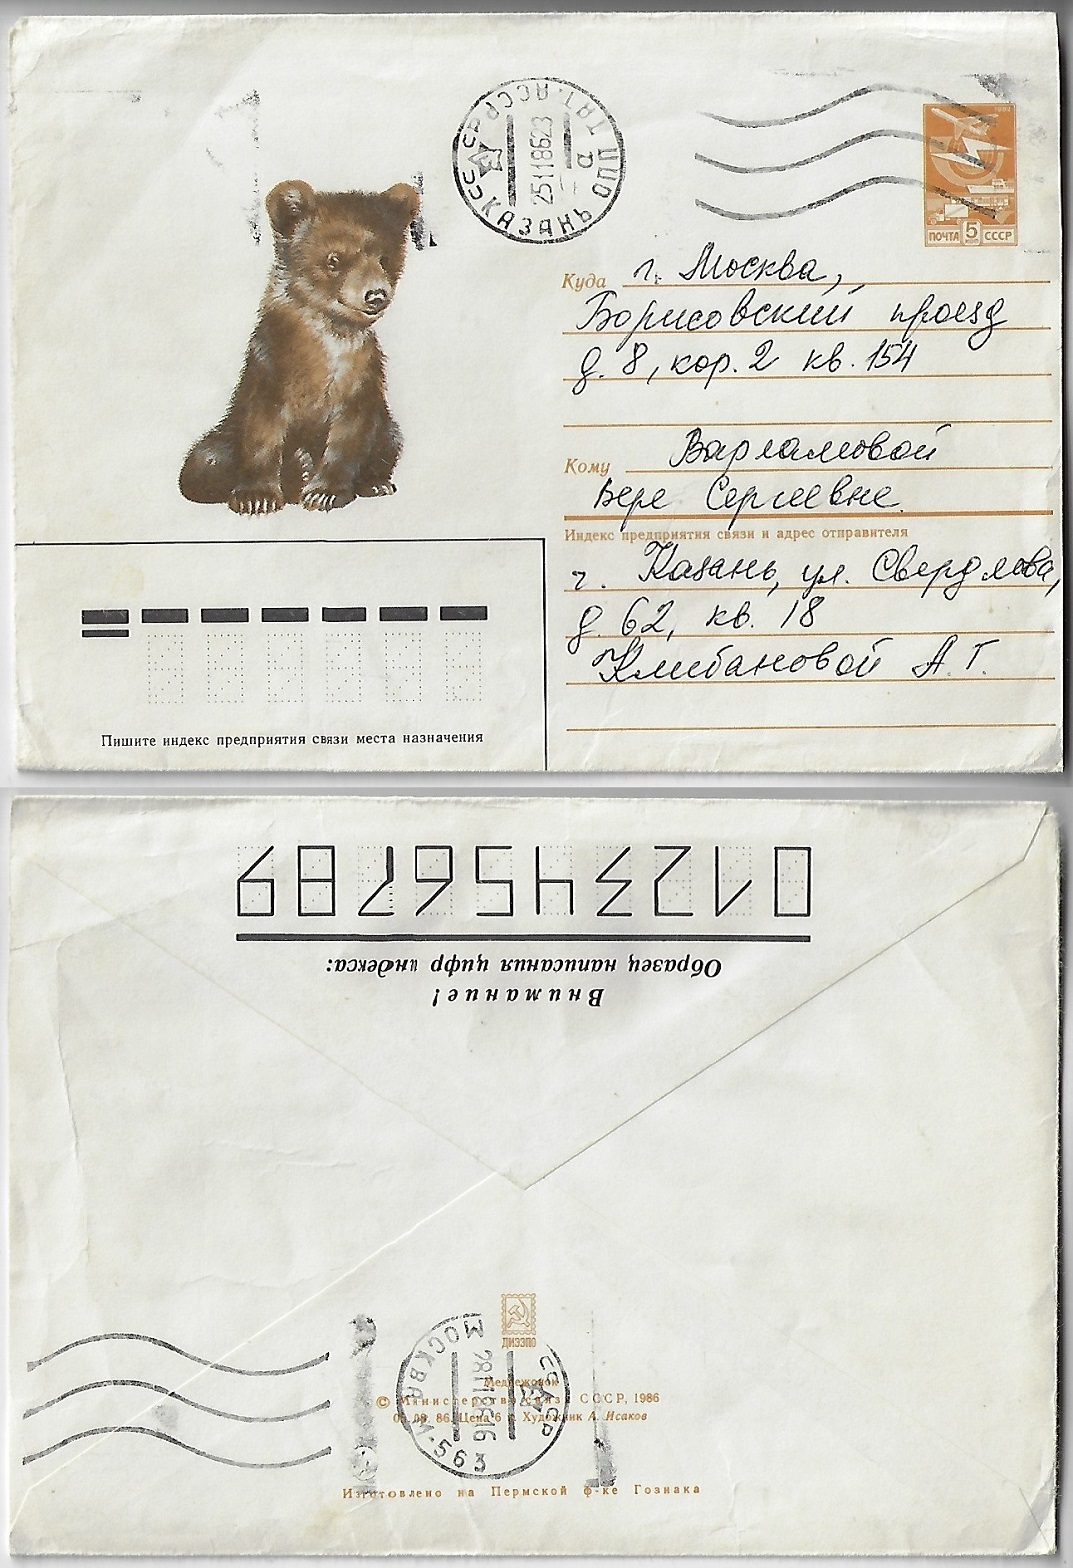 СССР КАЗАНЬ ПЦО ТАТ. АССР
25 11 86 23
а
ПОЧТА 5 КОП СССР
Куда г. Москва,
Борисовский проезд
д. 8, кор. 2 кв. 154
Кому Варламовой
Вере Сергеевне.
Индекс предприятия связи и адрес отправителя
г. Казань, ул. Свердлова,
д. 62, кв. 18
Клибановой А. Г.
Пишите индекс предприятия связи места назначения
0123456789
Образец написания цифр индекса:
Внимание!
ДИЭЗПО
МОСКВА М-563 СССР
28 11 86 16
Медвежонок
© Министерство связи СССР, 1986
86. Цена 6 к. Художник А. Исаков
Изготовлено на Пермской ф-ке Гознака